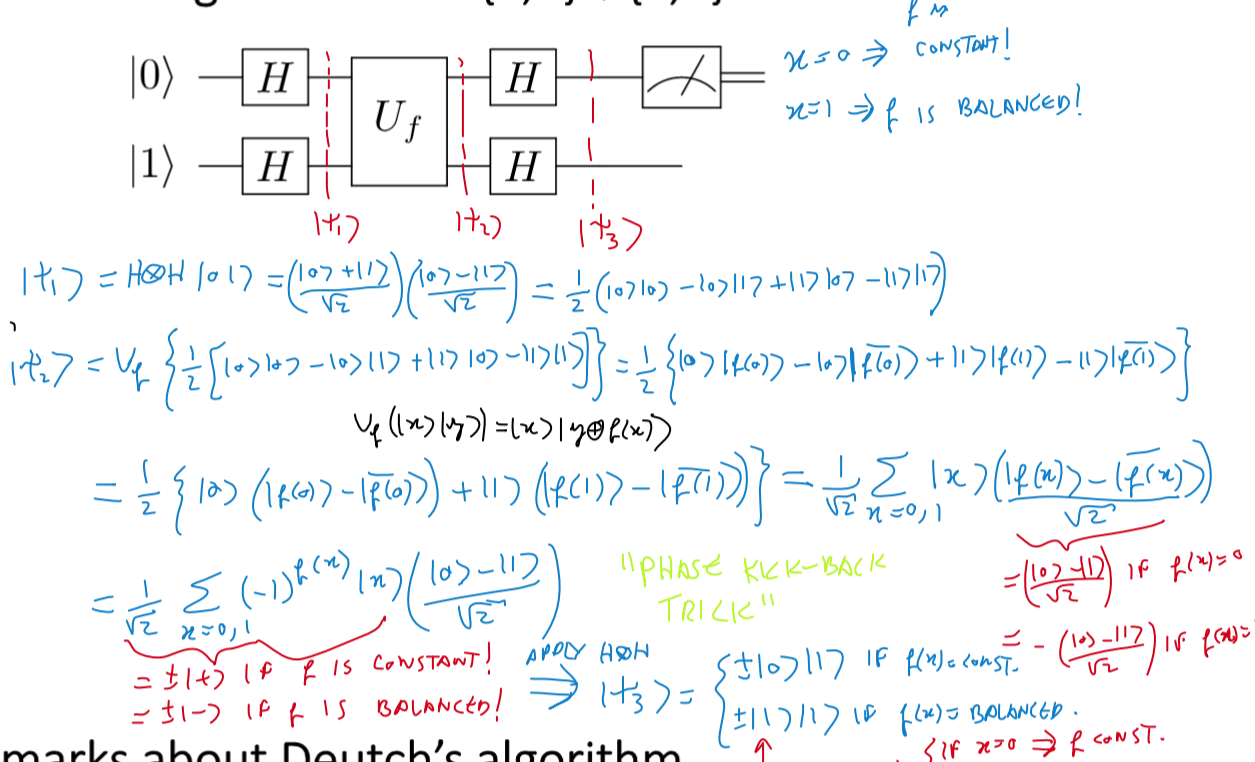 f is
|0⟩ H H x=0 ⇒ CONSTANT!
U_f
x=1 ⇒ f IS BALANCED!
|1⟩ H H
|ψ₁⟩ |ψ₂⟩ |ψ₃⟩
|ψ₁⟩ = H⊗H |01⟩ = ((|0⟩+|1⟩)/√2)((|0⟩-|1⟩)/√2) = 1/2 (|0⟩|0⟩ - |0⟩|1⟩ + |1⟩|0⟩ - |1⟩|1⟩)
|ψ₂⟩ = U_f {1/2 [|0⟩|0⟩ - |0⟩|1⟩ + |1⟩|0⟩ - |1⟩|1⟩]} = 1/2 {|0⟩|f(0)⟩ - |0⟩|f̅(̅0̅)̅⟩ + |1⟩|f(1)⟩ - |1⟩|f̅(̅1̅)̅⟩}
U_f(|x⟩|y⟩) = |x⟩|y⊕f(x)⟩
= 1/2 {|0⟩(|f(0)⟩ - |f̅(̅0̅)̅⟩) + |1⟩(|f(1)⟩ - |f̅(̅1̅)̅⟩)} = 1/√2 Σ_{x=0,1} |x⟩(|f(x)⟩ - |f̅(̅x̅)̅⟩)/√2
= ((|0⟩-|1⟩)/√2) IF f(x)=0
= 1/√2 Σ_{x=0,1} (-1)^{f(x)} |x⟩((|0⟩-|1⟩)/√2)
"PHASE KICK-BACK
TRICK"
= -((|0⟩-|1⟩)/√2) IF f(x)=
= ±|+⟩ IF f IS CONSTANT!
= ±|-⟩ IF f IS BALANCED!
APPLY H⊗H
⇒ |ψ₃⟩ = { ±|0⟩|1⟩ IF f(x)=CONST.
±|1⟩|1⟩ IF f(x)=BALANCED.
{IF x=0 ⇒ f CONST.
marks about Deutch's algorithm